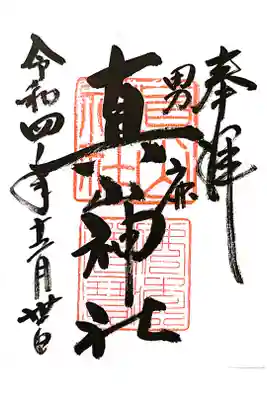 奉拝
男鹿
真山神社
令和四年十二月卅日